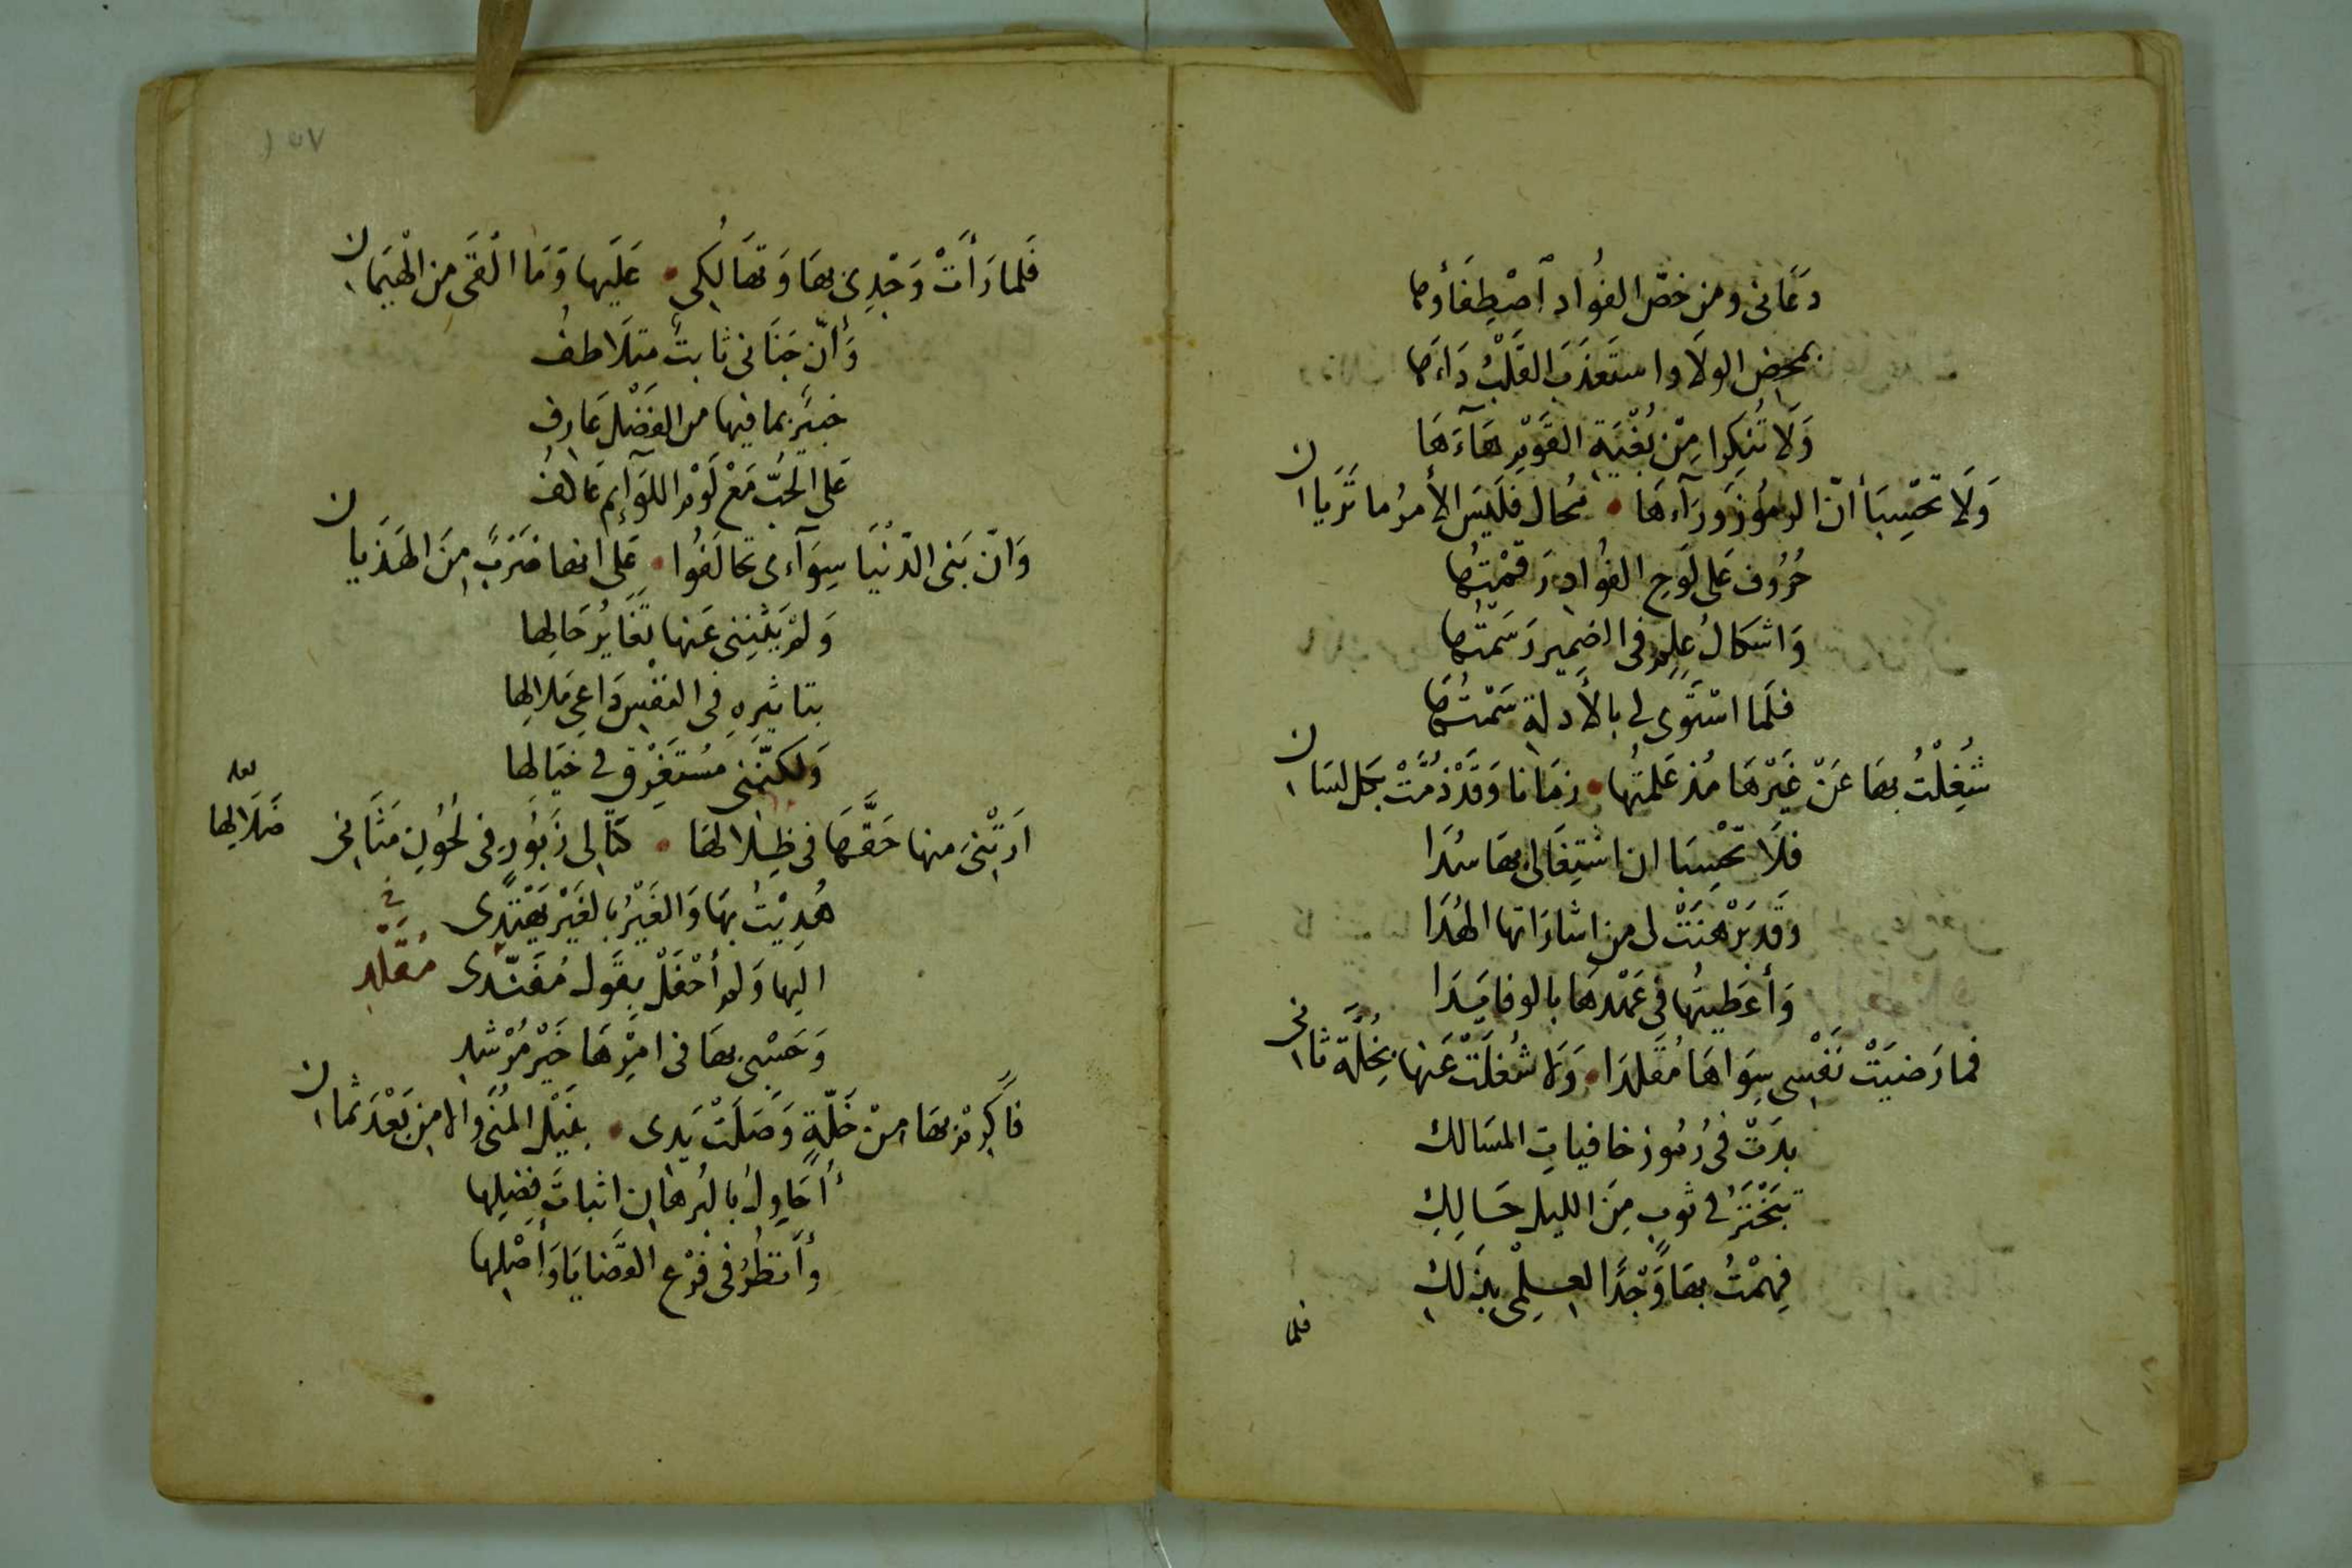 دَعَانى ومن خصّ الفُواد اَصْطِفَاؤها
بمحض الولَا واستَعْذَبَ القَلْبُ دَاءَها
وَلَا تُنكِرا مِنْ بُغْيَةِ القَوْمِ هَآءَهَا
وَلَا تَحْسِبَا أنّ الرمُوُزَ وَرَآءَهَا • مُحال فَلَيسَ الأمرُ ما تَرَيان
حُرُوف عَلى لَوحِ الفُواد رَقَمْتُها
وَاشكالُ عِلمٍ فى الضمِير رَسَمْتُها
فلَما اسْتَوى لى بالأدلة سَمْتُها
شُغِلْتُ بها عَنْ غَيْرهَا مُذ عَلمتُها • زمَانا وَقَدْ ذُمَّتْ بكل لسَان
فلَا تَحْسِبَا ان اشتِغَالى بهَا سُدَا
وَقَد بَرْهَنَتْ لى من اشارَاتها الهُدَا
وَأعطَيتُها فى عَهْدهَا بالوفا يَدَا
فما رَضيَتْ نَفْسِى سِوَاهَا مُقَلدَا • وَلا شُغِلَتْ عَنها بِخُلَّة ثانى
بدَتْ فى رُمُوز خافيات المسَالك
تبَخْتَرُ فى ثوبٍ مِنَ الليل حَالِكِ
فِهمْتُ بهَا وَجْدًا لعِلمِى بذلكِ
فلما
فَلما رَأَتْ وَجْدِى بهَا وَتهَالُكِى • عَلَيها وَمَا القَى من الهَيَمان
وَأنّ جَنَانى ثابتٌ متلَاطفُ
خبيَرٌ بما فيها من الفَضْلِ عَارِف
عَلى الحُبّ مَعْ لَوْمِ اللوَآئِم عَاكفُ
وَانّ بَنى الدّنْيَا سِوَآءى تحالَفُوا • عَلى انها ضَرْبٌ مِنَ الهَذَيان
وَلمْ يَثْنِنى عَنها تَغَايُر حَالِها
بتاثيرِهِ فى النفْسِ دَاعى مَلَالِها
وَلكنّنى مُستَغْرِق فى خيَالِها
اَرَتْنِى منها حَقَّهَا فى ظِلَالهَا • كتَالى زَبُورٍ فى لُحُونِ مَثَانِى
لعله
ضَلَالِها
هُدِيْتُ بهَا وَالغَيْرُ بالغَيْر يَهْتَدى
اليها وَلم أحْفَلْ بقَول مُفَنّدى
فى
مُقَلّد
وَحَسْبى بهَا فى امْرِهَا خَيْر مُرْشد
فاَكرِمْ بهَا مِنْ خَلّةٍ وَصَلَتْ يَدى • بنَيْل المُنَى والامنِ بَعْدَ ثمان
أُحَاوِلُ بالبُرهَان اثباتَ فضلِها
وأنظُرُ فى فَرْع القَضَايَا وَأصْلِها